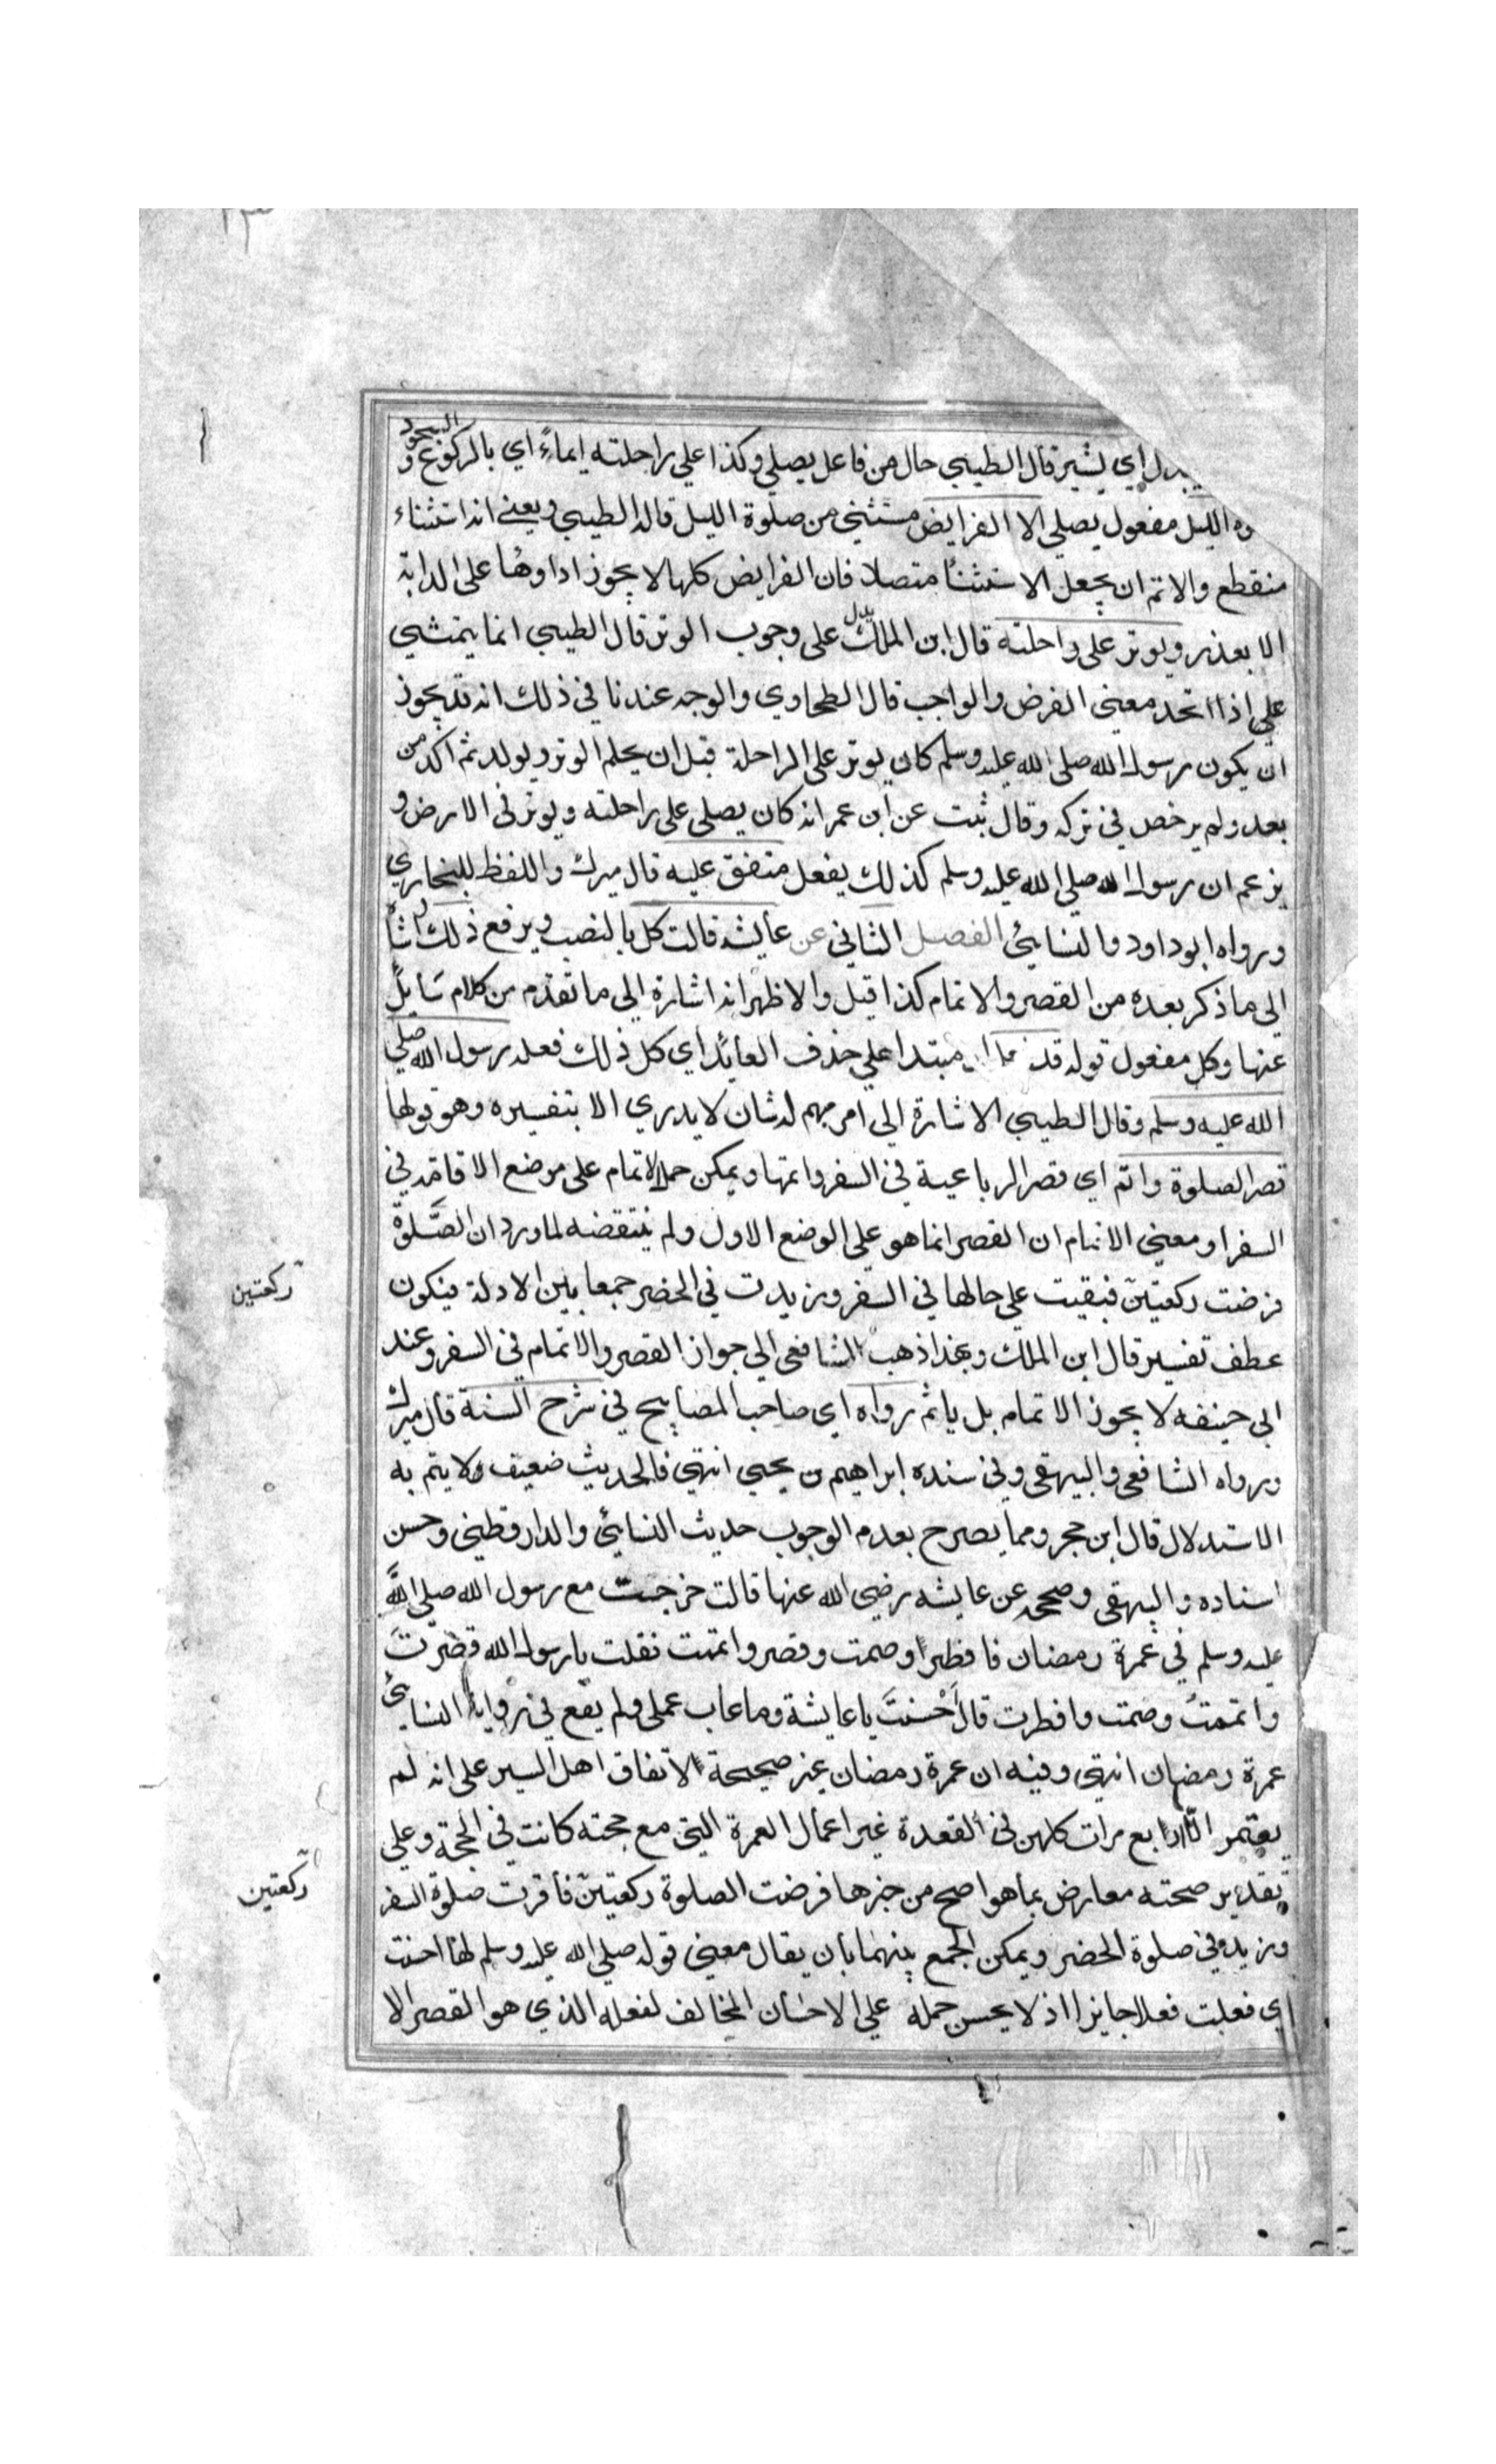 اي يشير قال الطيبي حال من فاعل يصلي وكذا علي راحلته ايماءً اي بالركوع و السجود
الليل مفعول يصلي الا الفرايض مستثني من صلوة الليل قاله الطيبي ويعني انه استثناء
منقطع والاتم ان يجعل الاستثنأ متصلا فان الفرايض كلها لا يجوز اداوها على الدابة
الا بعذر ويوتر على راحلته قال ابن الملك يدل على وجوب الوتر قال الطيبي انما يتمشي
علي اذا اتحد معني الفرض والواجب قال الطحاوي والوجه عندنا في ذلك انه قد يجوز
ان يكون رسول الله صلى الله عليه وسلم كان يوتر على الراحلة قبل ان يحلم الوتر ويولد ثم اكد من
بعد ولم يرخص في تركه وقال ثبت عن ابن عمر انه كان يصلي على راحلته ويوتر في الارض و
يزعم ان رسول الله صلي الله عليه وسلم كذلك يفعل متفق عليه قال ميرك واللفظ للبخاري
ورواه ابو داود والنسايئ الفصل الثاني عن عايشه قالت كل بالنصب ويرفع ذلك اشارة
الى ما ذكر بعده من القصر والاتمام كذا قيل والاظهر انه اشارة الى ما تقدم من كلام سَايل
عنها وكل مفعول قوله قد مبتدا علي حذف العائد اي كل ذلك فعله رسول الله صلي
الله عليه وسلم وقال الطيبي الاشارة الى امر مبهم له شان لا يدري الا بتفسيره وهو قولها
قصر الصلوة واتم اي قصر الرباعية في السفر واتمها ويمكن حمل الاتمام على موضع الاقامة في
السفر او معني الاتمام ان القصر انما هو على الوضع الاول ولم ينتقضه لما ورد ان الصَّلوة
فرضت ركعتين فبقيت علي حالها في السفر وزيدت في الحضر جمعا بين الادلة فيكون
ركعتين
عطف تفسير قال ابن الملك وبهذا ذهب الشافعي الي جواز القصر والاتمام في السفر وعند
ابي حنيفه لا يجوز الاتمام بل ياثم رواه اي صاحب المصابيح في شرح السنة قال ميرك
ورواه الشافعي والبيهقي وفي سنده ابراهيم بن يحيي انتهي فالحديث ضعيف ولا يتم به
الاستدلال قال ابن حجر ومما يصرح بعدم الوجوب حديث النسايئ والدارقطني وحسن
اسناده والبيهقي وصححه عن عايشه رضي الله عنها قالت خرجت مع رسول الله صلي الله
عليه وسلم في عمرة رمضان فافطر وصمت وقصر واتممت فقلت يا رسول الله قصرتَ
واتممتُ وصمت وافطرت قال احْسنتَ يا عايشة وما عاب عملى ولم يقع في رواية النسايئ
عمرة رمضان انتهي وفيه ان عمرة رمضان غير صحيحة لاتفاق اهل السير على انه لم
يعتمر الا اربع مرات كلهن في القعدة غير اعمال العمرة التي مع حجته كانت في الحجة وعلي
تقدير صحته معارض بما هو اصح من خبرها فرضت الصلوة ركعتين فأقرت صلوة السفر
ركعتين
وزيد في صلوة الحضر ويمكن الجمع بينهما بان يقال معني قوله صلي الله عليه وسلم لها احسنت
اي فعلت فعلا جايزا اذ لا يحسن حمله علي الاحسان المخالف لفعله الذي هو القصر الا